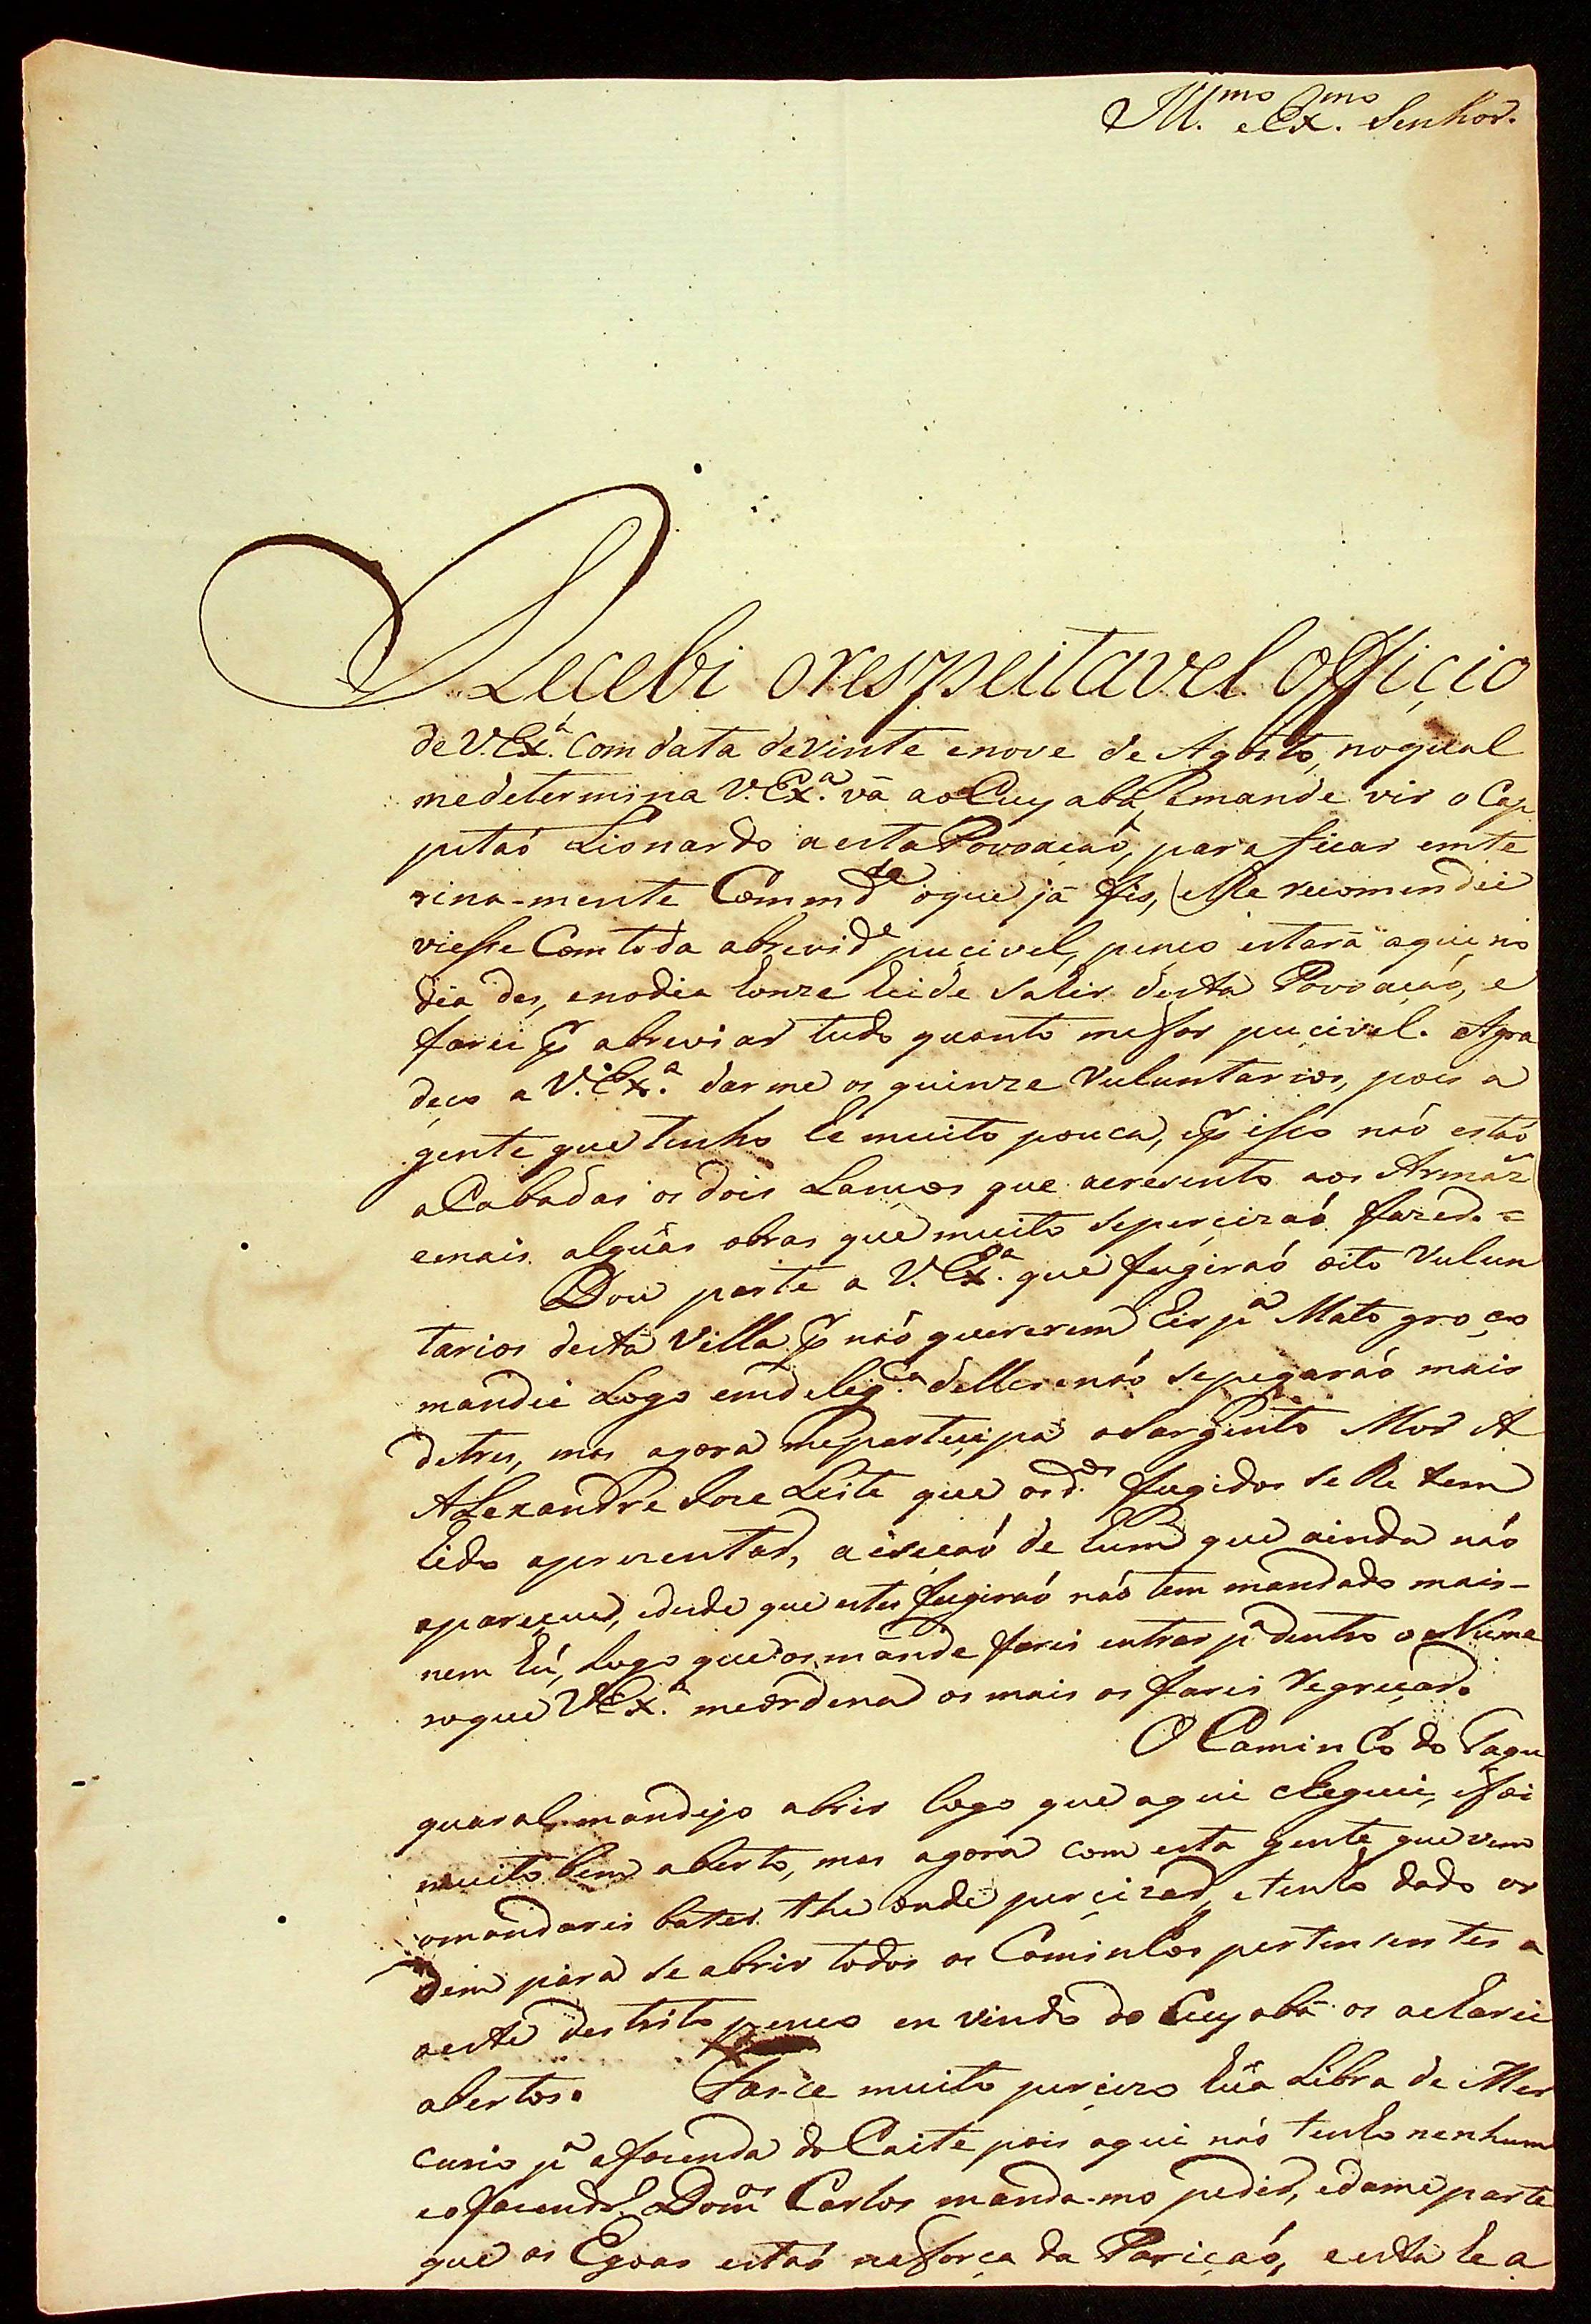 Ill.mo e Ex.mo Senhor.
Recebi orespeitavel officio
de V. Ex.a Com data devinte enove de Agosto, noqual
medetermina V. Ex.a vá ao Cuyabá, emande vir o Cap
pitaõ Lionardo aesta Povoaçaõ, para ficar emte
rina-mente Commd.te oque já fis, elhe recomendei
viesse Comtoda abrevid.e puçivel, penço estará aqui no
dia des, enodia honze heide Sahir desta Povoaçaõ, e
farei p abreviar tudo quanto mefor puçivel. Agra
deço a V. Ex.a darme os quinze Vuluntarios, pois a
gente que tenho he muito pouca, ep isso naõ estaõ
aCabadas os dois Lanços que acresento aos Armaz
emais alguãs obras que muito seperçizaõ fazer. =
Dou parte a V. Ex.a que fugiraõ oito Vulun
tarios desta Villa p naõ quererem hir p.a Mato groço
mandei Logo emdelig.ca delles enaõ sepegaraõ mais
detres, mas agora meparteçipa oSargento Mor A
Alexandre Joze Leite que osd.os fugidos selhe tem
hido aprezentar, aeiseçaõ de hum que ainda naõ
apareçeu, edesde que estes fugiraõ naõ tem mandado mais-
nem hú, Logo que os mande farei entrar p.a dentro o Nume
roque V. Ex.a meordena os mais os farei Regreçar.
O Caminho do Jagu
quaral mandejo abrir logo que aqui cheguei, efoi
muito bem aberto, mas agora com esta gente que vem
omandarei bater the onde perçizar, etenho dado or
dem para se abrir todos os Caminhos pertensentes a
aeste destrito penço en vindo do Cuyabá os acharei
abertos. Fasce muito perçizo huã Libra de Mer
curio p.a afazenda do Caite pois aqui naõ tenho nenhum
eofazend.o Dom.os Carlos manda-mo pedir, edame parte
que as Egoas estaõ naforça da Pariçaõ, eesta he a